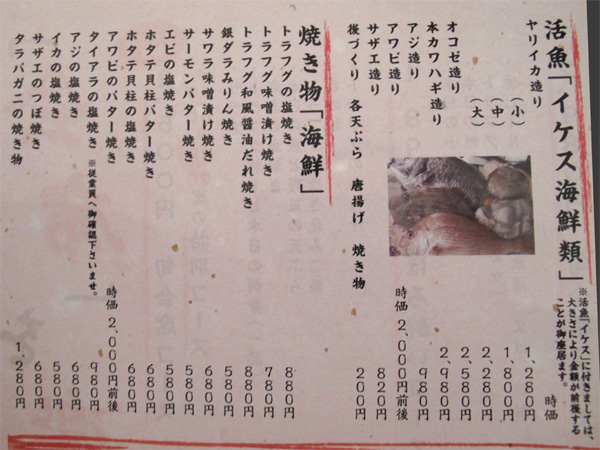 活魚「イケス海鮮類」
※活魚「イケス」に付きましては、
大きさにより金額が前後する
ことが御座居ます。
時価
ヤリイカ造り（小） 1,280円
（中） 1,800円
（大） 2,280円
オコゼ造り 2,580円
本カワハギ造り 2,980円
アジ造り 980円
アワビ造り 時価2,000円前後
サザエ造り 820円
後づくり 各天ぷら 唐揚げ 焼き物 200円
焼き物「海鮮」
トラフグの塩焼き 880円
トラフグ味噌漬け焼き 780円
トラフグ和風醤油だれ焼き 880円
銀ダラみりん焼き 580円
サワラ味噌漬け焼き 680円
サーモンバター焼き 580円
エビの塩焼き 580円
ホタテ貝柱バター焼き 680円
ホタテ貝柱の塩焼き 680円
アワビのバター焼き 時価2,000円前後
タイアラの塩焼き ※従業員へ御確認下さいませ。 980円
アジの塩焼き 680円
イカの塩焼き 580円
サザエのつぼ焼き 680円
タラバガニの焼き物 1,280円